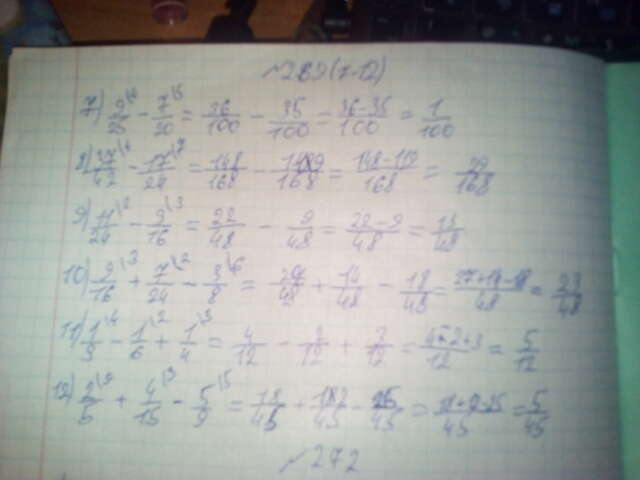 №289(7-12)
7) 9/25\4 - 7/20\5 = 36/100 - 35/100 = 36-35/100 = 1/100
8) 37/42\4 - 17/24\7 = 148/168 - 119/168 = 148-119/168 = 29/168
9) 11/24\2 - 3/16\3 = 22/48 - 9/48 = 22-9/48 = 13/48
10) 9/16\3 + 7/24\2 - 3/8\6 = 27/48 + 14/48 - 18/48 = 27+14-18/48 = 23/48
11) 1/3\4 - 1/6\2 + 1/4\3 = 4/12 - 2/12 + 3/12 = 4-2+3/12 = 5/12
12) 2/5\9 + 4/15\3 - 5/9\5 = 18/45 + 12/45 - 25/45 = /45 = 5/45
№272